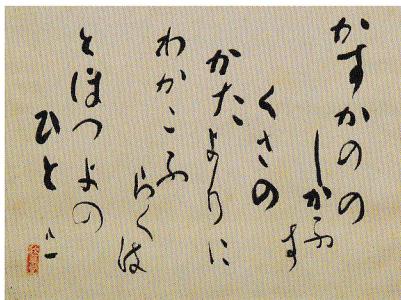 かすかのの
しかふす
くさの
かたよりに
わかこふ
らくは
とほつよの
ひと 八一